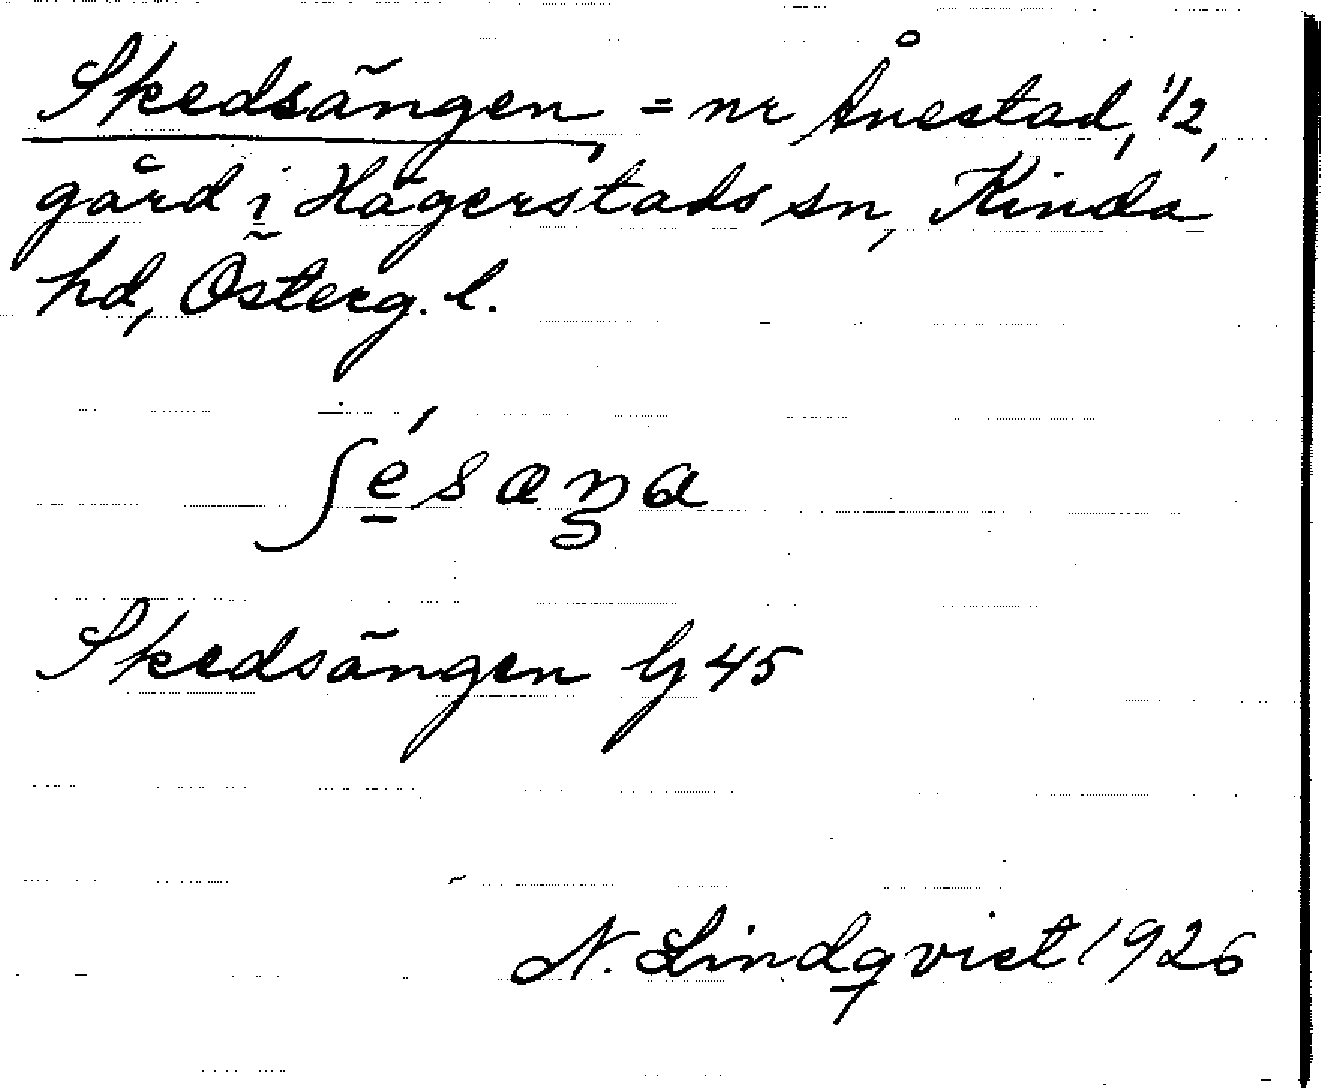 Skedsängen = nr Ånestad, 1/2,
gård i Hägerstads sn, Kinda
hd, Österg. l.
ʃésæŋa
Skedsängen Gj 45
N. Lindqvist 1926